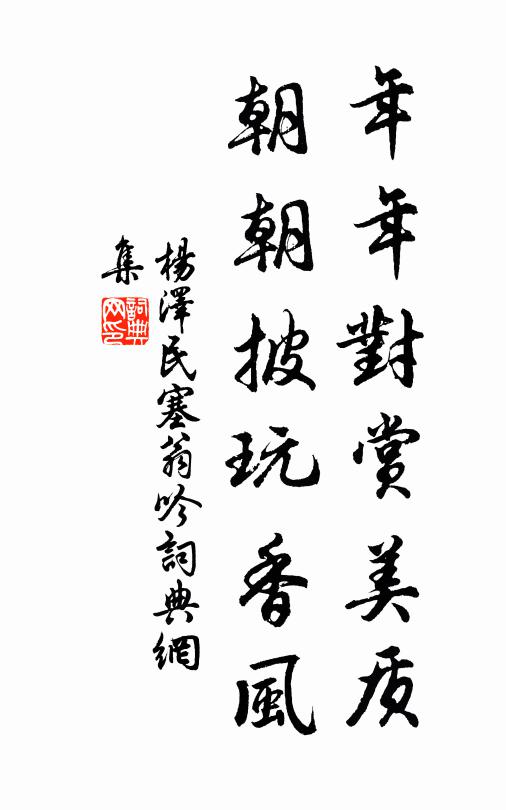 年年對賞美质
朝朝披玩香風
楊澤民塞翁吟詞典網
集
詞典
网印